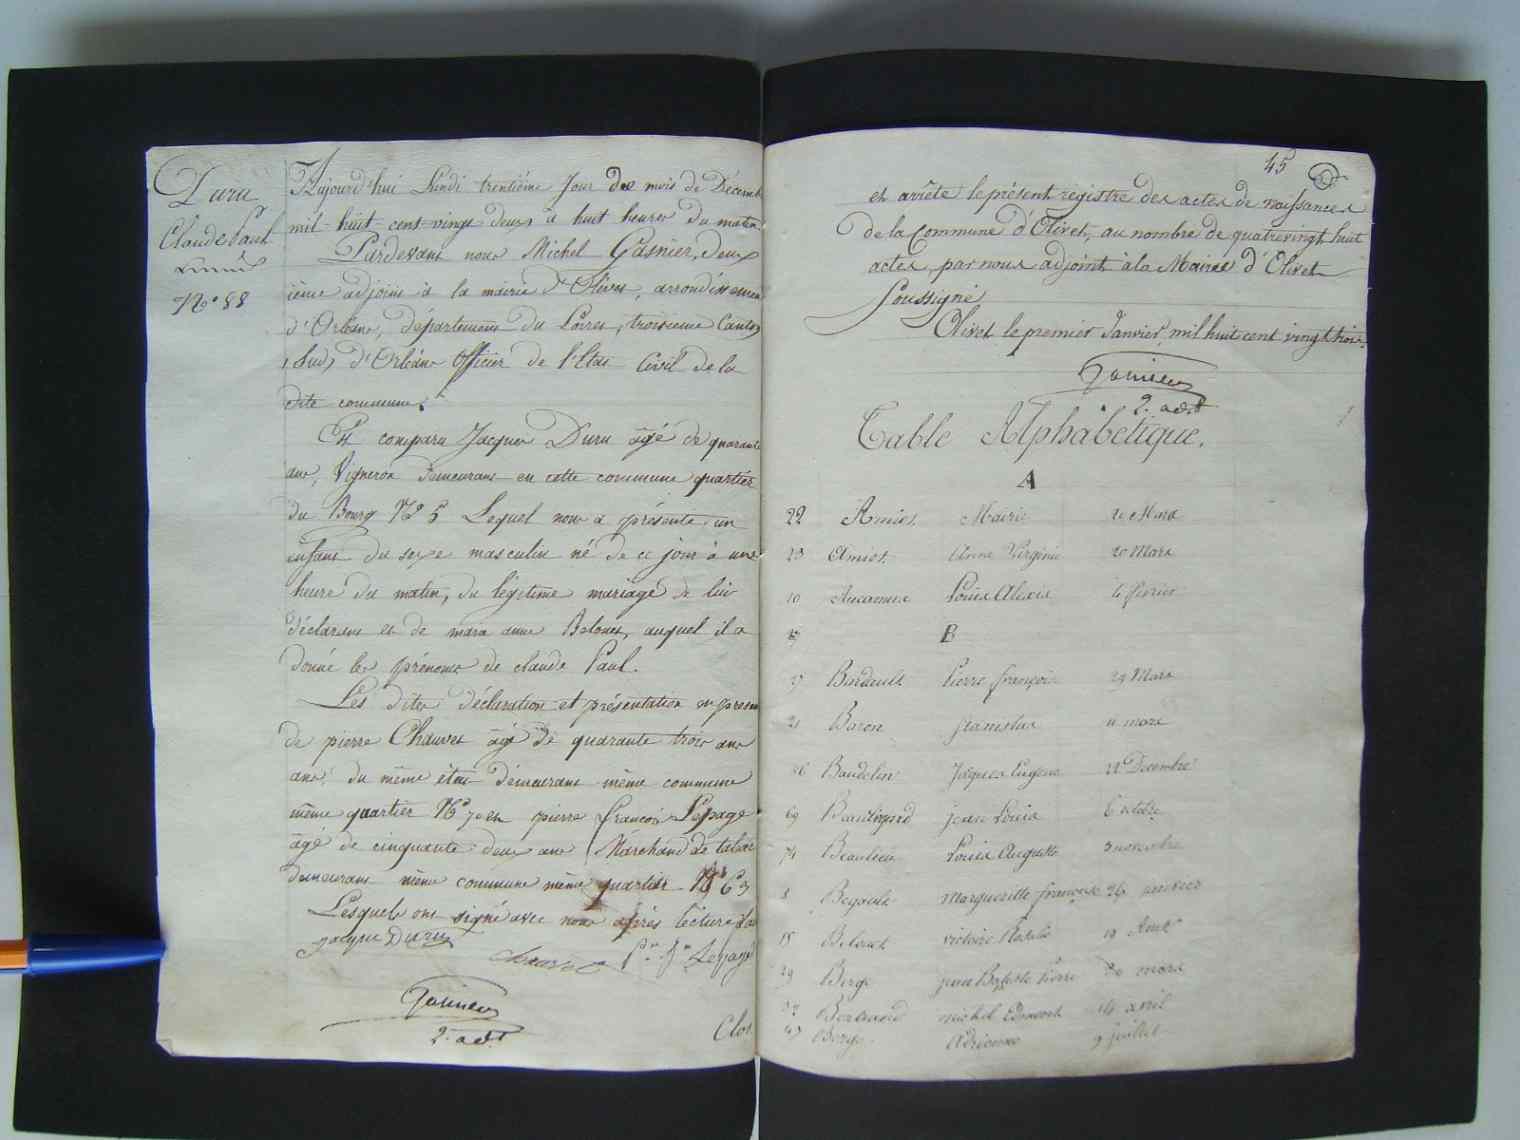 Duru
Claude Paul
N.° 88
Aujourd'hui Lundi trentième Jour du mois de Décemb
mil-huit cent-vingt deux à huit heures du matin
Pardevant nous Michel Gasnier, deux
ième adjoint à la mairie d'Olivet, arrondissemen
d'Orléans, département du Loiret, troisieme Canton
(Sud) d'Orléans Officier de l'Etat Civil de la
dite commune.
Est comparu Jacques Duru âgé de quarante
ans, Vigneron demeurant en cette commune quartier
du Bourg N.° 5 Lequel nous a présenté un
enfant du sexe masculin né de ce jour à une
heure du matin, du légitime mariage de lui
déclarant et de marie anne Belouet, auquel il a
donné les prénoms de claude Paul.
Les dites déclaration et présentation en presen
de pierre Chauvet âgé de quarante trois ans
ans du même état demeurant même commune
même quartier N.° 70 et pierre francois Lepage
âgé de cinquante deux ans Marchand de tabac
demeurant même commune même quartier N.° 63
Lesquels ont signé avec nous après lecture
jacque Duru
Chauvet P.re f.ois Lepage
Gasnier
2.e adj.t
Clos
45
et arrête le présent registre des actes de naissances
de la Commune d'Olivet, au nombre de quatrevingt huit
actes, par nous adjoint à la Mairie d'Olivet
Soussigné
Olivet le premier Janvier mil huit cent vingt trois.
Gasnier
2.e adj.t
Table Alphabétique.
A
22 Amiot Marie 20 Mars
23 Amiot Anne Virginie 20 Mars
10 Louis Alexis février
B
27 Bardault Pierre françois 29 Mars
21 Baron Stanislas mars
86 Baudelin Jacques Eugene 22 Decembre
69 jean Louis 6 octobre
74 Beaulieu Louis Auguste 3 novembre
8 Begault Marguerite françoise 26 janvier
15 Belouet victoire Rosalie 19
29 Berge jean Baptiste Pierre 30 mars
32 Bertrand michel Edmond 14 avril
47 Berge Adrienne 9 juillet